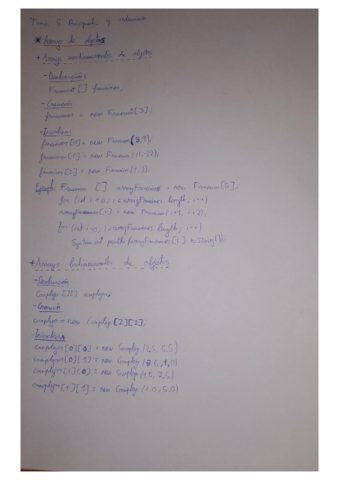 Tema 6. Búsqueda y ordenación
* Arrays de objetos
+ Arrays unidimensionales de objetos
- Declaración
Fraccion [] fracciones;
- Creación
fracciones = new Fraccion[3];
- Inicializar
fracciones[0] = new Fraccion(
fracciones[1] = new Fraccion(
fracciones[2] = new Fraccion(1,3);
Ejemplo Fraccion [] arrayFracciones = new Fraccion[5];
for (int i=0; i<arrayFracciones.length; i++)
arrayFracciones[i] = new Fraccion(i+1, i+2);
for (int i=0; i<arrayFracciones.length; i++)
System.out.println(arrayFracciones[i].toString());
+ Arrays bidimensionales de objetos
- Declaración
Complejo [][] complejos;
- Creación
complejos = new Complejo[2][2];
- Inicializar
complejos[0][0] = new Complejo(
complejos[0][1] = new Complejo(
complejos[1][0] = new Complejo(
complejos[1][1] = new Complejo(